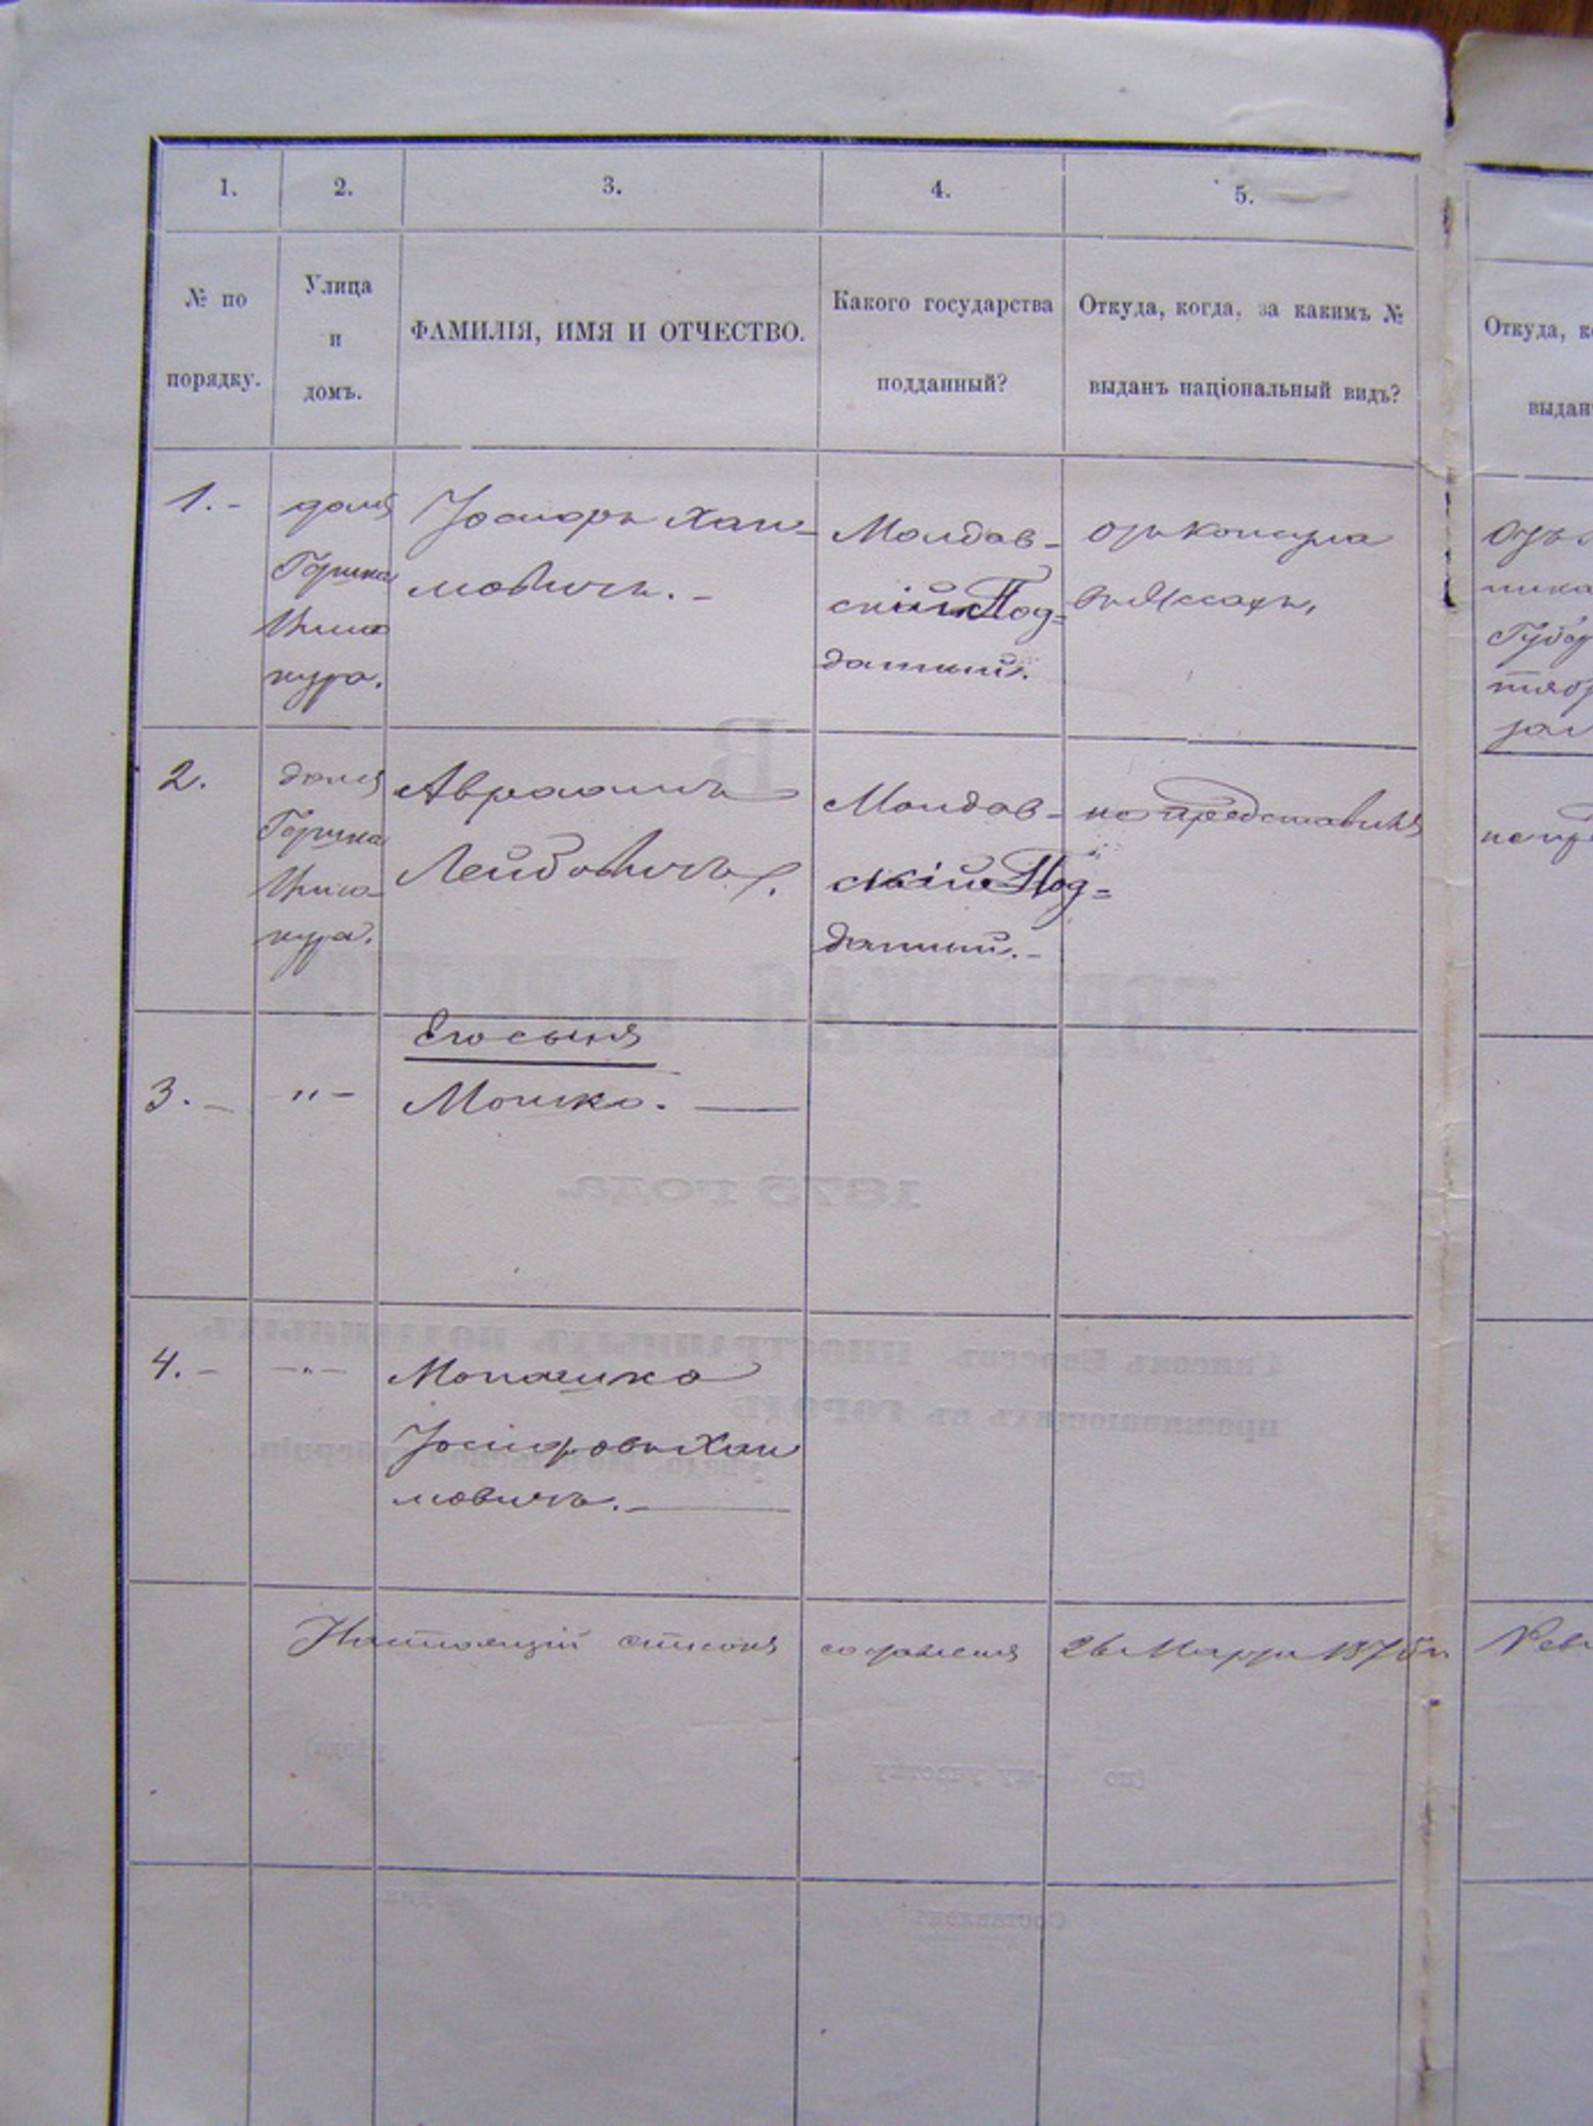 1.
2.
3.
4.
5.
№ по
порядку.
Улица
и
домъ.
ФАМИЛІЯ, ИМЯ И ОТЧЕСТВО.
Какого государства
подданный?
Откуда, когда, за какимъ №
выданъ національный видъ?
Откуда, к
выдан
1.-
домъ
Іосифъ Хаи-
мовичъ.-
Молдав-
скій Под=
данный.
отъ Консула
въ Яссахъ,
2.
домъ
Авраамъ
Лейбовичъ.
Молдав-
скій Под=
данный.-
не представилъ
не пр
Его сынъ
3.-
"-
Мошко.-
4.-
-"-
Монашко
Іосифовъ Хаи
мовичъ.-
Настоящій списокъ составленъ 26 Марта 1875 г.
1875 года.